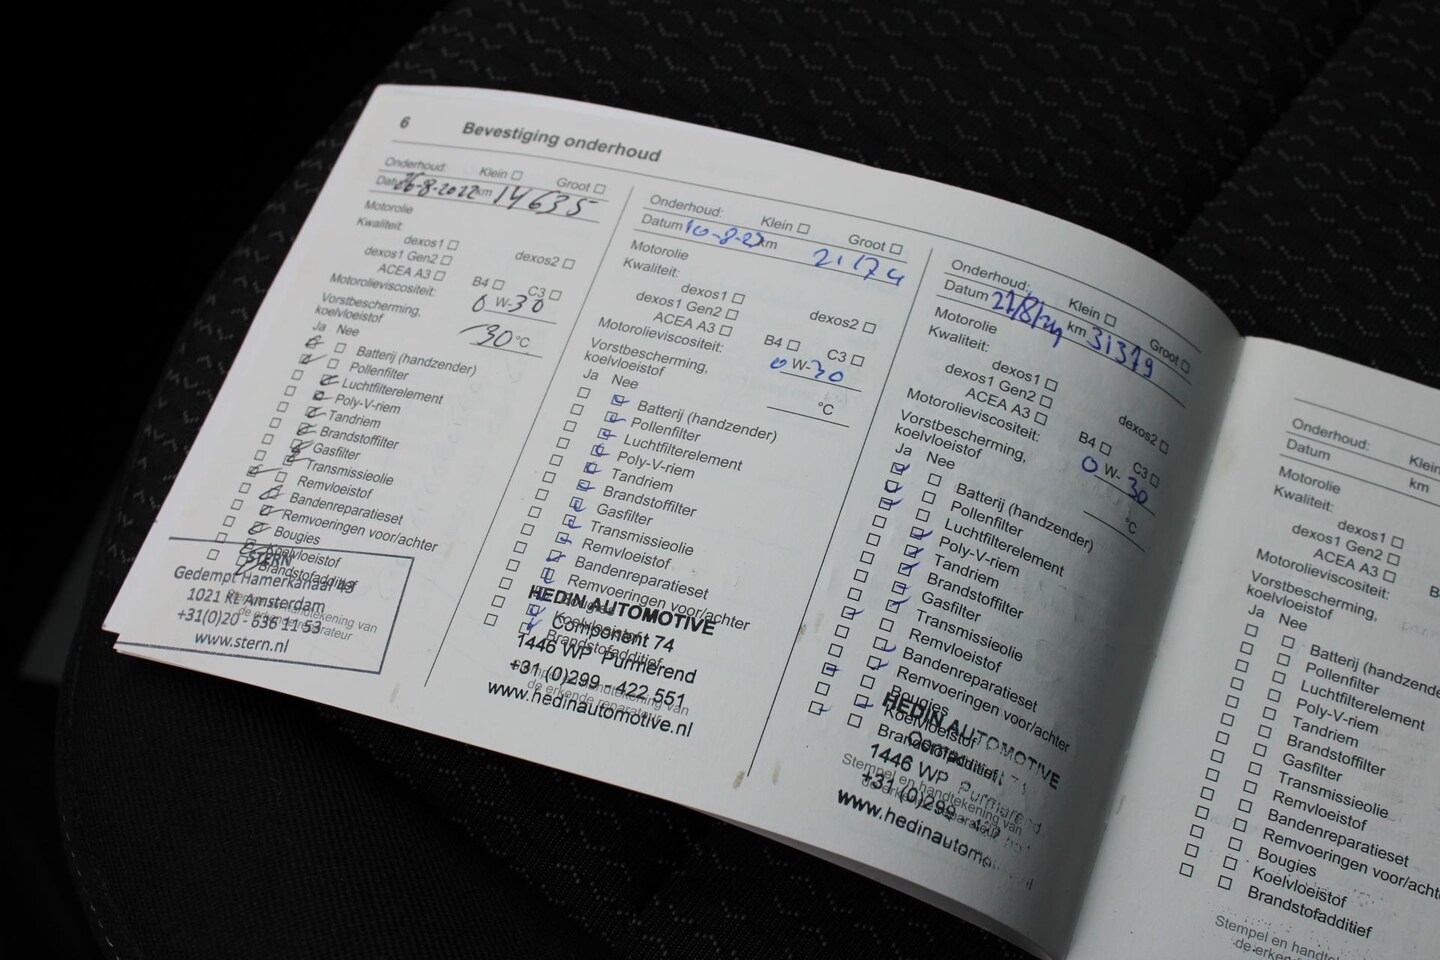 6 Bevestiging onderhoud
Onderhoud: Klein Groot
Datum 26-8-2022 km 14635
Motorolie
Kwaliteit:
dexos1 dexos2
dexos1 Gen2
ACEA A3 B4 C3
Motorolieviscositeit: 0 W-30
Vorstbescherming,
koelvloeistof 30 °C
Ja Nee
Batterij (handzender)
Pollenfilter
Luchtfilterelement
Poly-V-riem
Tandriem
Brandstoffilter
Gasfilter
Transmissieolie
Remvloeistof
Bandenreparatieset
Remvoeringen voor/achter
Bougies
Koelvloeistof
Brandstofadditief
STERN
Gedempt Hamerkanaal 43
1021 KL Amsterdam
+31(0)20 - 636 11 53
www.stern.nl
Onderhoud: Klein Groot
Datum 10-8-23 km 21174
Motorolie
Kwaliteit:
dexos1
dexos1 Gen2 dexos2
ACEA A3
Motorolieviscositeit: B4 C3
0 W-30
Vorstbescherming,
koelvloeistof °C
Ja Nee
Batterij (handzender)
Pollenfilter
Luchtfilterelement
Poly-V-riem
Tandriem
Brandstoffilter
Gasfilter
Transmissieolie
Remvloeistof
Bandenreparatieset
Remvoeringen voor/achter
Bougies
Koelvloeistof
Brandstofadditief
Stempel en handtekening van
de erkende reparateur
HEDIN AUTOMOTIVE
Component 74
1446 WP Purmerend
+31 (0)299 - 422 551
www.hedinautomotive.nl
Onderhoud: Klein Groot
Datum 21/8/24 km 31379
Motorolie
Kwaliteit:
dexos1
dexos1 Gen2 dexos2
ACEA A3
Motorolieviscositeit: B4 C3
0 W-30
Vorstbescherming,
koelvloeistof °C
Ja Nee
Batterij (handzender)
Pollenfilter
Luchtfilterelement
Poly-V-riem
Tandriem
Brandstoffilter
Gasfilter
Transmissieolie
Remvloeistof
Bandenreparatieset
Remvoeringen voor/achter
Bougies
Koelvloeistof
Brandstofadditief
Stempel en handtekening van
de erkende reparateur
HEDIN AUTOMOTIVE
1446 WP Purmerend
+31 (0)299
www.hedinautomo
Onderhoud: Klein
Datum km
Motorolie
Kwaliteit:
dexos1
dexos1 Gen2
ACEA A3
Motorolieviscositeit: B
Vorstbescherming,
koelvloeistof
Ja Nee
Batterij (handzende
Pollenfilter
Luchtfilterelement
Poly-V-riem
Tandriem
Brandstoffilter
Gasfilter
Transmissieolie
Remvloeistof
Bandenreparatieset
Remvoeringen voor/acht
Bougies
Koelvloeistof
Brandstofadditief
Stempel en handte
de erken